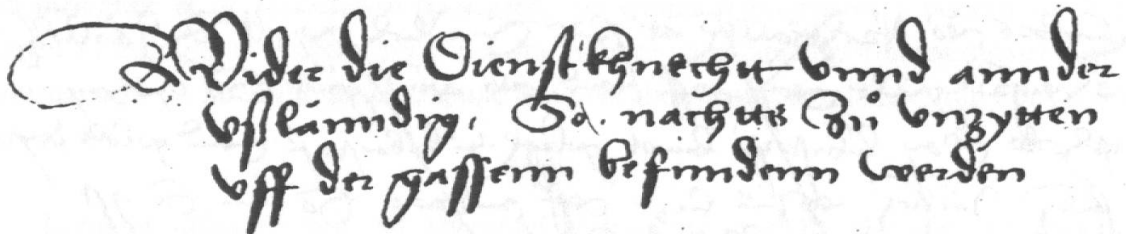 Wider die Dienstkhnecht vnnd annder
vßlänndig, So. nachtts Zů vnzytten
vff der gassenn befunndenn werden